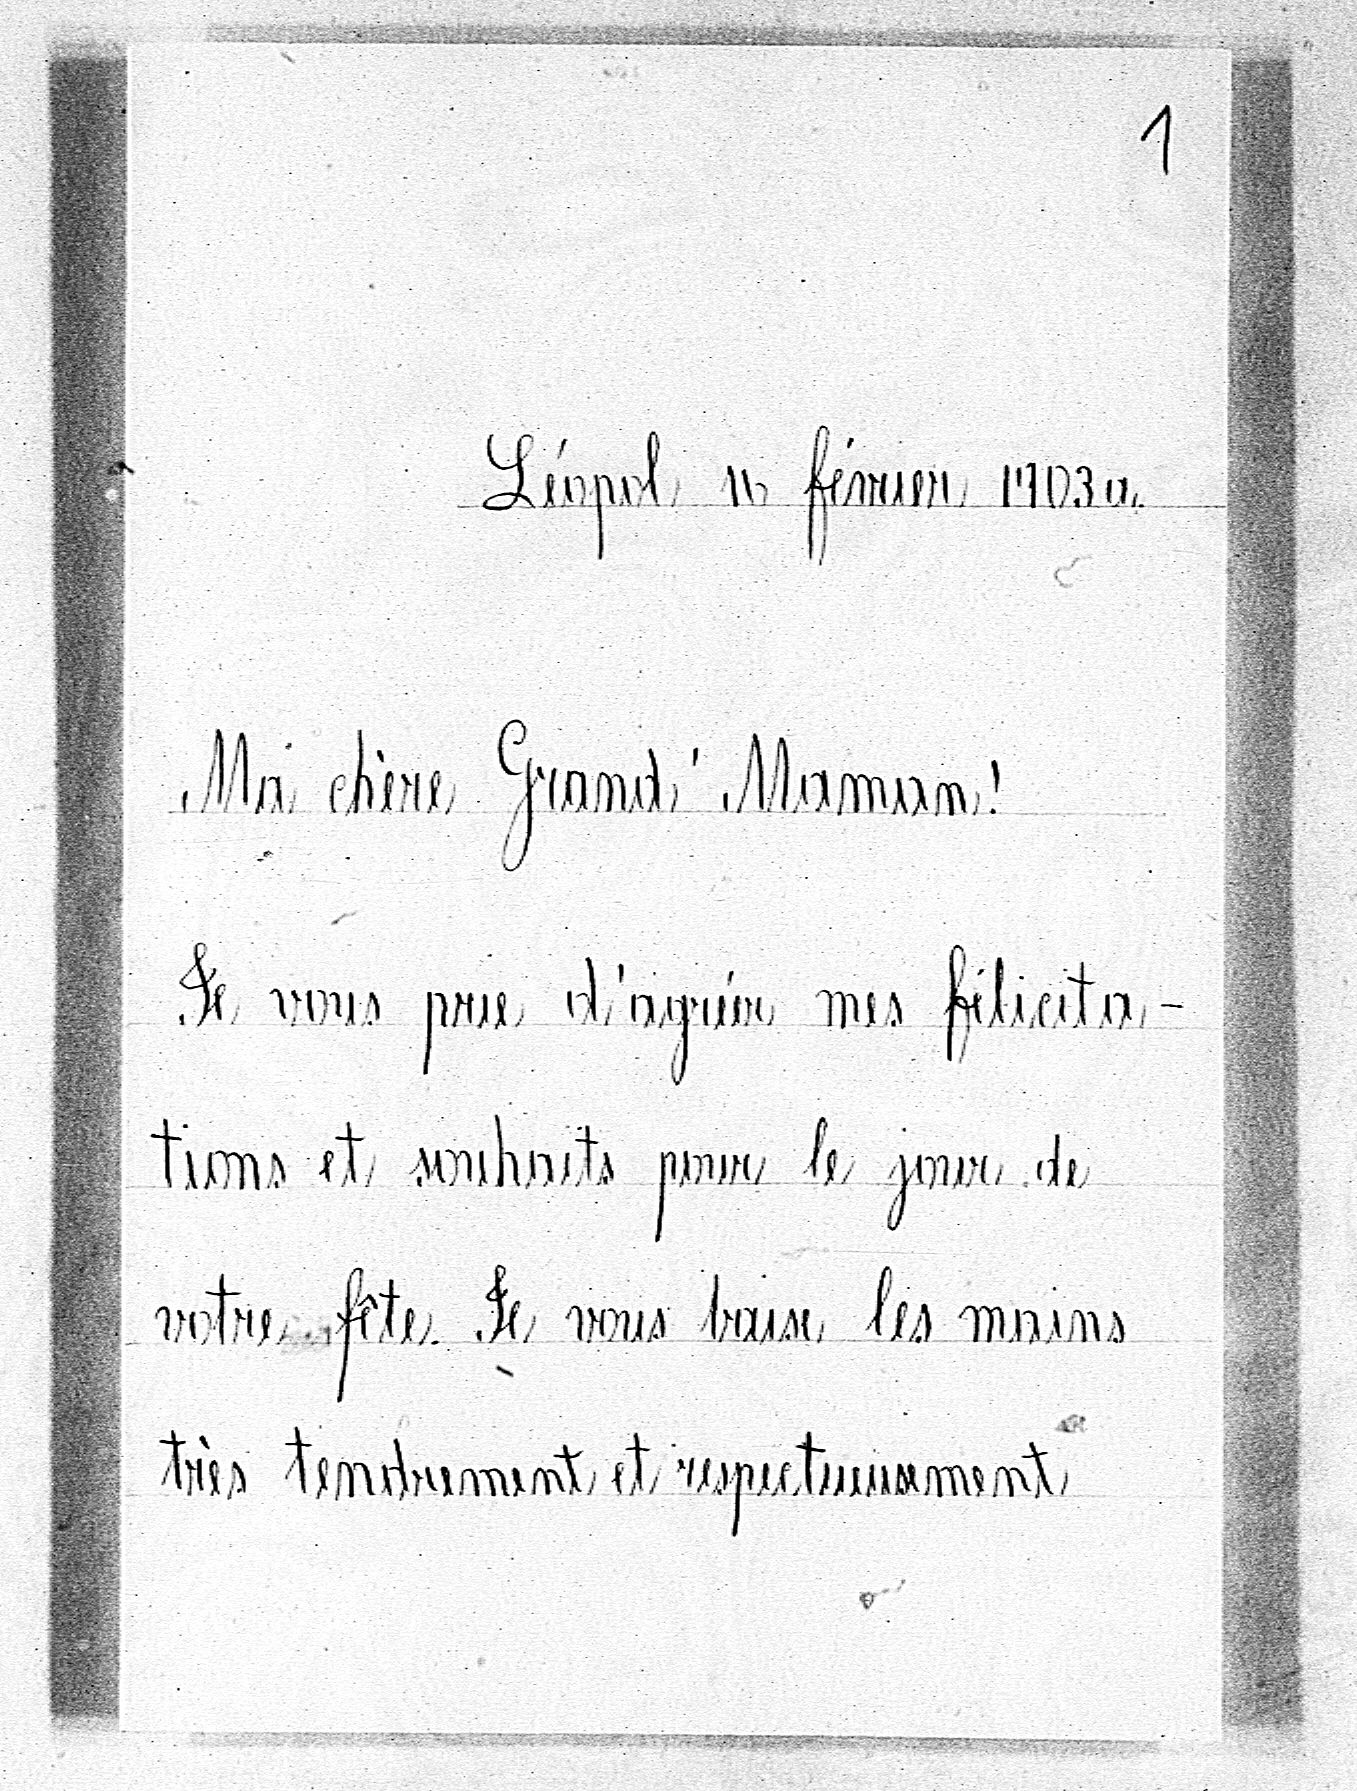 1
Léopol 16 février 1903 a.
Ma chère Grand' Maman!
Je vous prie d'agréer mes félicita-
tions et souhaits pour le jour de
votre fête. Je vous baise les mains
très tendrement et respectueusement